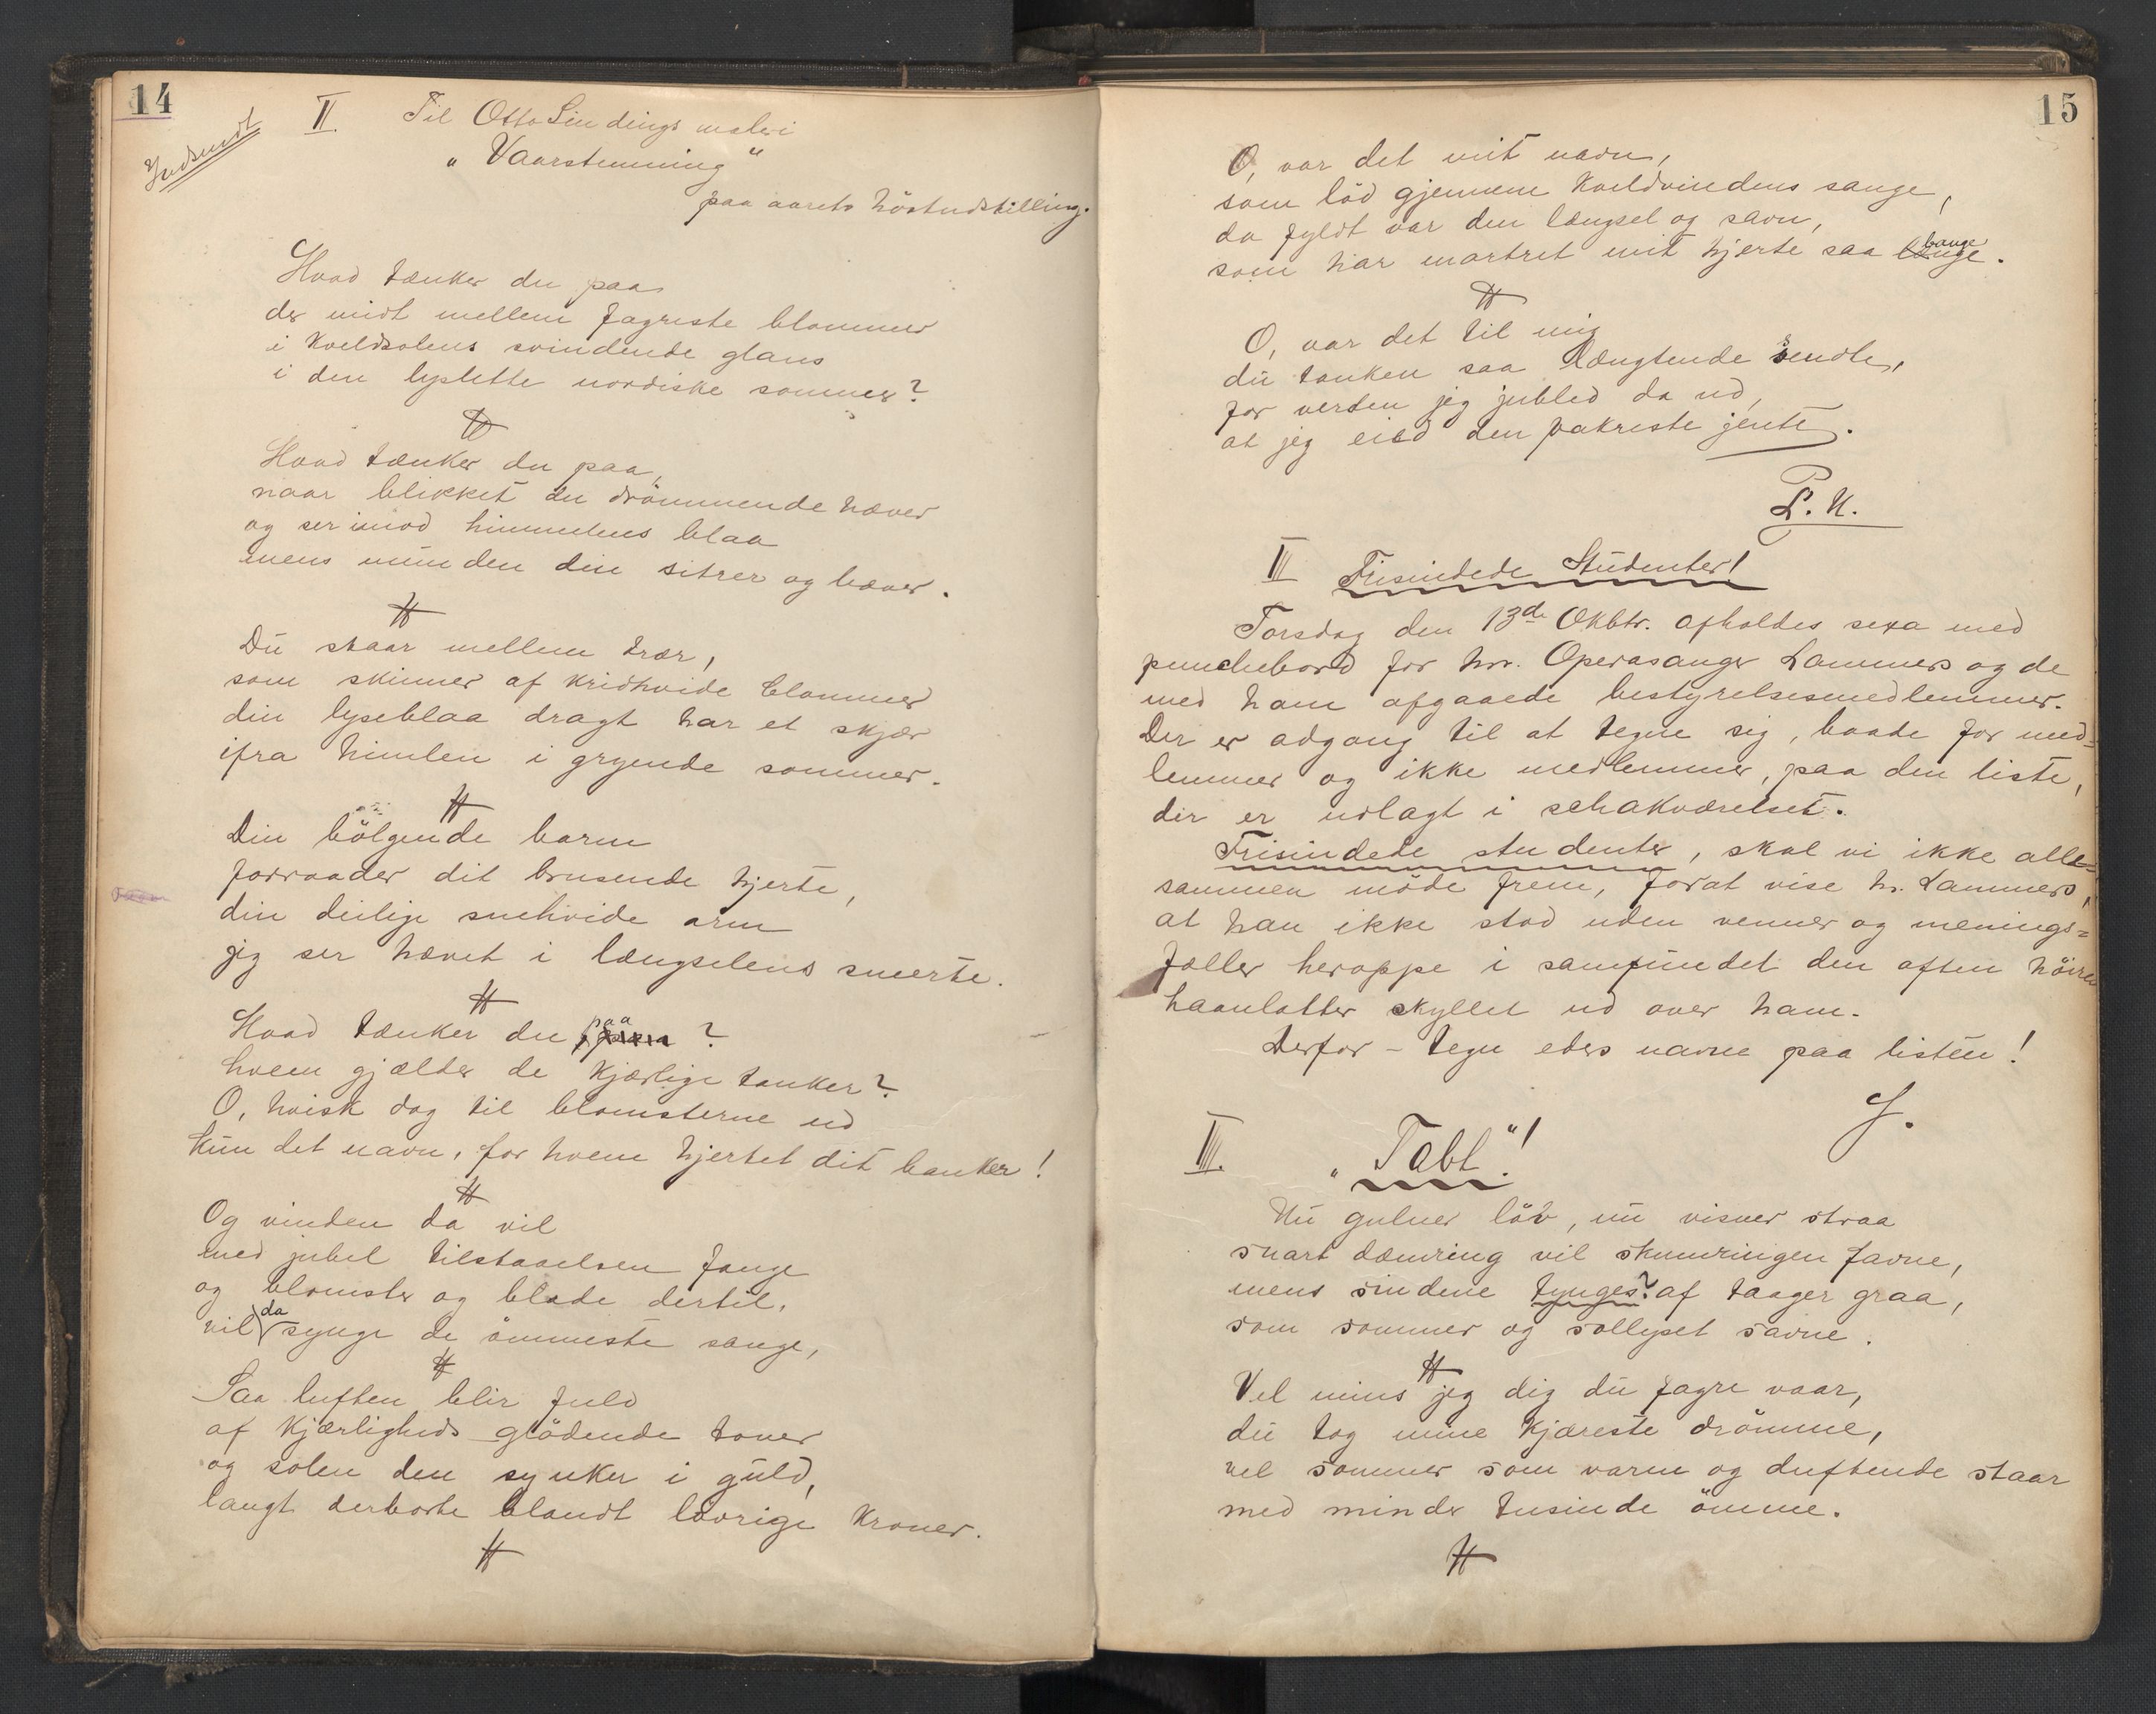 14
Indsendt
II. Til Otto Sindings maleri
„Vaarstemning“
paa aarets höstudstilling.
Hvad tænker du paa
der midt mellem fagreste blommer
i kveldsolens svindende glans
i den lyslette nordiske sommer?
Hvad tænker du paa,
naar blikket du drömmende hæver
og ser imod himmelens blaa
mens munden din sitrer og bæver.
Du staar mellem trær,
som skinner af kridhvide blommer
din lyseblaa dragt har et skjær
ifra himlen i gryende sommer.
Din bölgende barm
forraader dit brusende hjerte,
din deilige snehvide arm
jeg ser hævet i længselens smerte.
Hvad tænker du paa ?
hvem gjælder de kjærlige tanker?
O, hvisk dog til blomsterne ud
kun det navn, for hvem hjertet dit banker!
Og vinden da vil
med jubel tilstaaelsen fange
og blomster og blade dertil,
vil da synge de ömmeste sange,
Saa luften blir fuld
af kjærligheds glödende toner
og solen den synker i guld,
langt derborte blandt lövrige kroner.
15
O, var det mit navn,
som löd gjennem kveldvindens sange,
da fyldt var den længsel og savn,
som har martret mit hjerte saa bange.
O, var det til mig
du tanken saa længtende sendte,
for verden jeg jubled da ud,
at jeg eied den vakreste jente.
P. K.
II Frisindede Studenter!
Torsdag den 13de Oktbr. afholdes sexa med
punchebord for hr. Operasanger Lammers og de
med ham afgaaede bestyrelsesmedlemmer.
Der er adgang til at tegne sig, baade for med=
lemmer og ikke medlemmer, paa den liste,
der er udlagt i schakværelset.
Frisindede studenter, skal vi ikke alle=
sammen möde frem, forat vise hr. Lammers,
at han ikke stod uden venner og menings=
fæller heroppe i samfundet den aften höires
haanlatter skyllet ud over ham.
Derfor – tegn eders navne paa listen!
J.
III. „Tabt“!
Nu gulner löv, nu visner straa
snart dæmring vil skumringen favne,
mens sindene tynges? af taager graa,
som sommer og sollyset savne.
Vel mins jeg dig du fagre vaar,
du tog mine kjæreste drömme,
vel sommer som varm og duftende staar
med minder tusinde ömme.